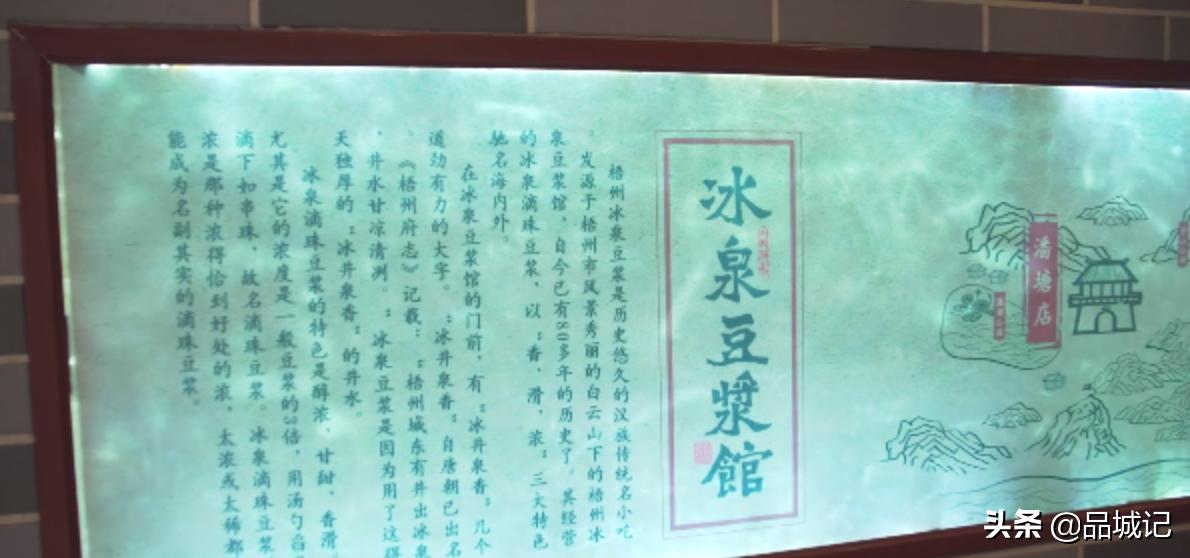 冰泉豆漿館
梧州冰泉豆浆是历史悠久的汉族传统名小吃
。发源于梧州市风景秀丽的白云山下的梧州冰
泉豆浆馆，自今已有80多年的历史了。其经营
的冰泉滴珠豆浆，以：香，滑，浓：三大特色
驰名海内外。
在冰泉豆浆馆的门前，有：冰井泉香：几个
遒劲有力的大字。：冰井泉香：自唐朝已出名
。《梧州府志》记载：：梧州城东有井出冰泉
，井水甘凉清冽。：冰泉豆浆是因为用了这得
天独厚的：冰井泉香：的井水。
冰泉滴珠豆浆的特色是醇浓、甘甜，香滑
尤其是它的浓度是一般豆浆的3倍，用汤勺舀
滴下如串珠，故名滴珠豆浆。冰泉滴珠豆浆
浓是那种浓得恰到好处的浓，太浓或太稀都
能成为名副其实的滴珠豆浆。
潘塘店
头条 @品城记